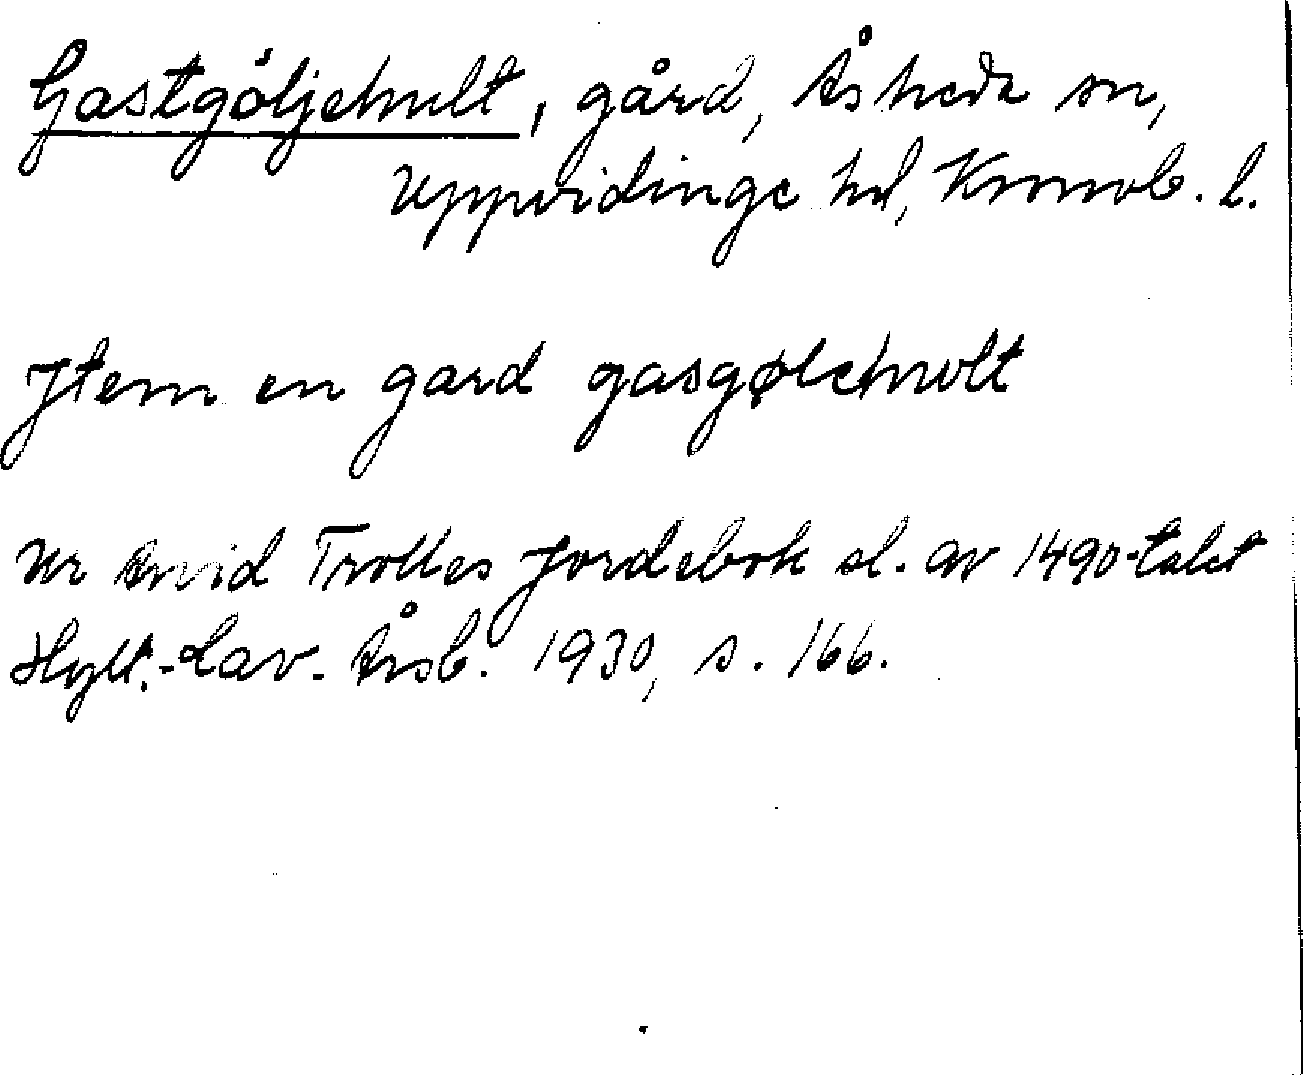 Gastgöljehult, gård, Åsheda sn,
Uppvidinge hd, Kronob. l.
Jtem en gard gasgølehwlt
Ur Arvid Trolles Jordebok sl. av 1490-talet
Hylt.-Cav. Årsb. 1930, s. 166.